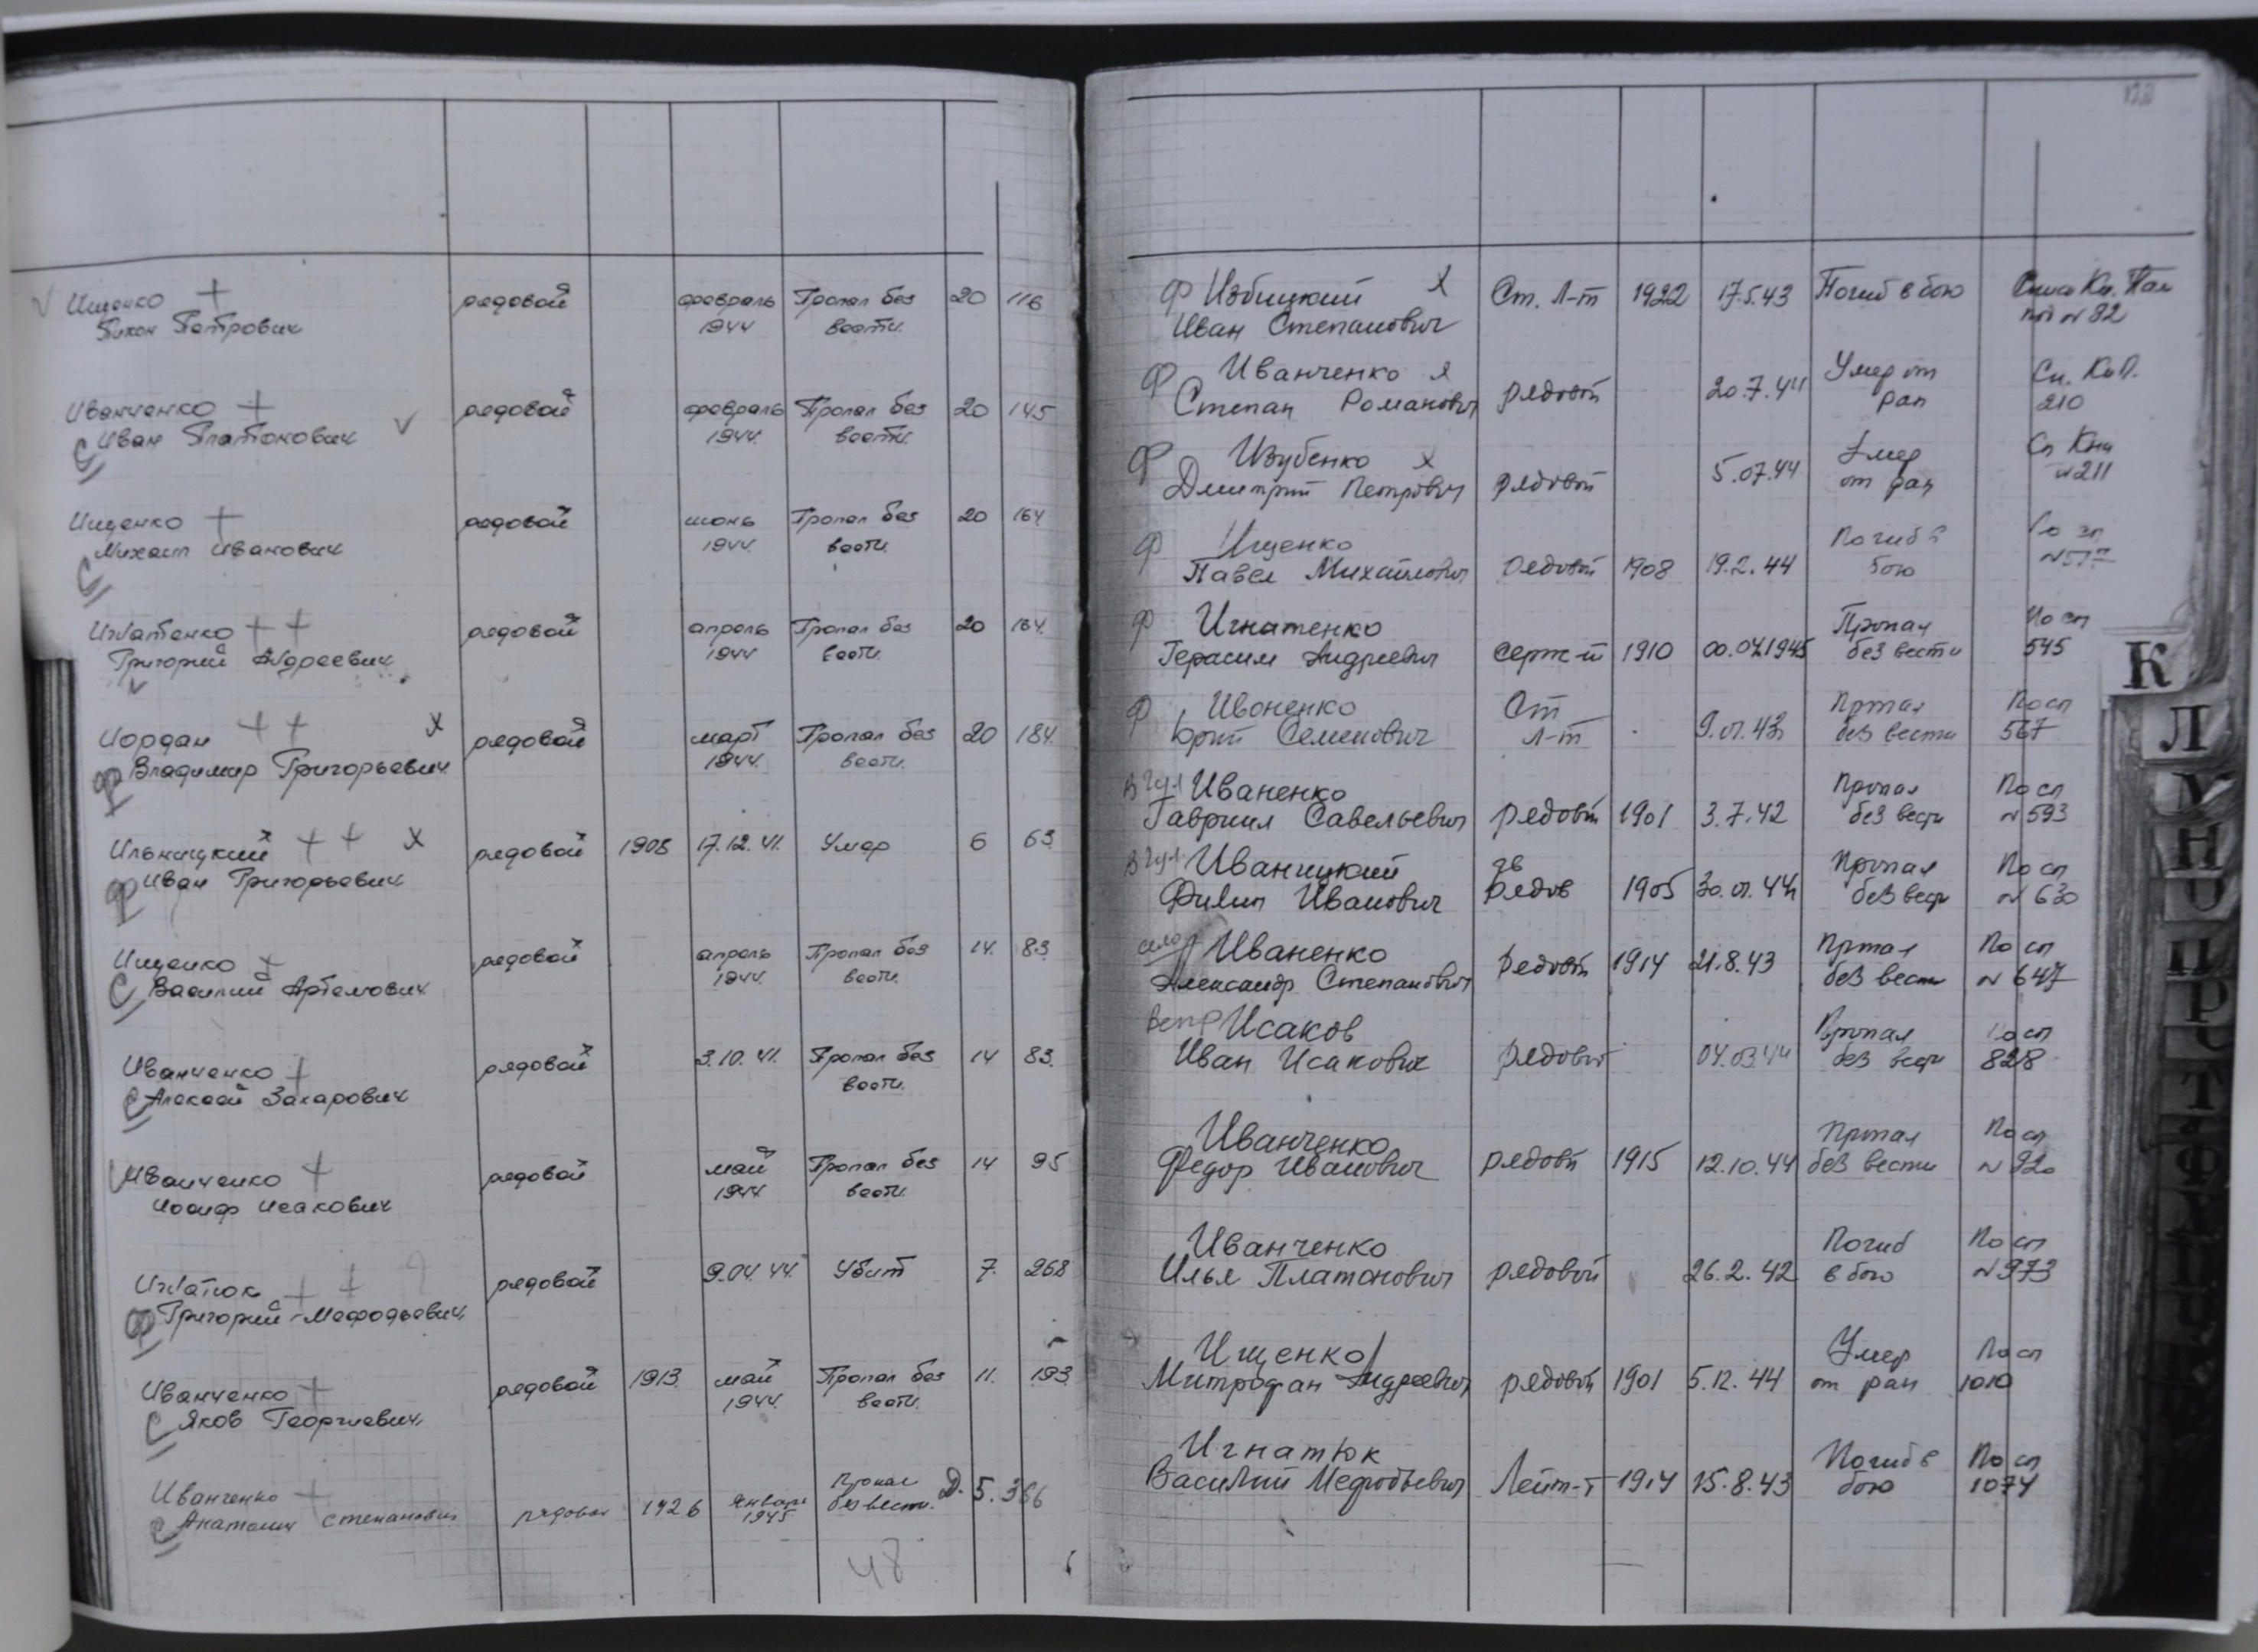 Ищенко рядовой февраль Пропал без 20 116
Тихон Петрович 1944 вести.
Иванченко рядовой февраль Пропал без 20 145
С Иван Платонович 1944. вести.
Ищенко рядовой июнь Пропал без 20 164
С Михаил Иванович 1944. вести.
Игнатенко рядовой апрель Пропал без 20 164.
Григорий Андреевич 1944 вести.
Иордан х рядовой март Пропал без 20 184.
Ф Владимир Григорьевич 1944. вести.
Ильницкий х рядовой 1908 17.12.41. Умер 6 63
Ф Иван Григорьевич
Ищенко рядовой апрель Пропал без 14. 83
С Василий Артемович 1944. вести.
Иванченко рядовой 3.10.41. Пропал без 14 83.
С Алексей Захарович вести.
Иванченко рядовой май Пропал без 14 95
Иосиф Исакович 1944 вести.
Игнатюк рядовой 9.04.44. Убит 7. 268
Ф Григорий Мефодьевич
Иванченко рядовой 1913 май Пропал без 11. 193
С Яков Георгиевич 1944. вести.
Иванченко рядовой 1926 январь Пропал Д. 5. 366
С Анатолий Степанович 1945 без вести.
48
Ф Избицкий х Ст. Л-т 1922 17.5.43 Погиб в бою
Иван Степанович № 82
Ф Иванченко х рядовой 20.7.44 Умер от Сп. Кн П.
Степан Романович ран 210
Ф Изубенко х рядовой 5.07.44 Умер Сп Кни
Дмитрий Петрович от ран №211
Ф Ищенко рядовой 1908 19.2.44 Погиб в По сп
Павел Михайлович бою
Ф Игнатенко серж-т 1910 00.04.1945 Пропал По сп
Герасим Андреевич без вести 545
Ф Ивоненко Ст Пропал По сп
Юрий Семенович Л-т 9.01.43 без вести 567
Иваненко рядовой 1901 3.7.42 Пропал По сп
Гавриил Савельевич без вести №593
Иваницкий гв Пропал По сп
Филип Иванович рядов 1905 30.01.44 без вести № 630
село Иваненко рядовой 1914 21.8.43 Пропал По сп
Александр Степанович без вести № 647
Исаков Пропал По сп
Иван Исакович рядовой 04.03.44 без вести 828
Иванченко Пропал По сп
Федор Иванович рядовой 1915 12.10.44 без вести № 920
Иванченко Погиб По сп
Илья Платонович рядовой 26.2.42 в бою №973
Ищенко Умер По сп
Митрофан Андреевич рядовой 1901 5.12.44 от ран 1010
Игнатюк Погиб в По сп
Василий Мефодьевич Лейт-т 1914 15.8.43 бою 1074
К
Л
М
Н
О
П
Р
С
Т